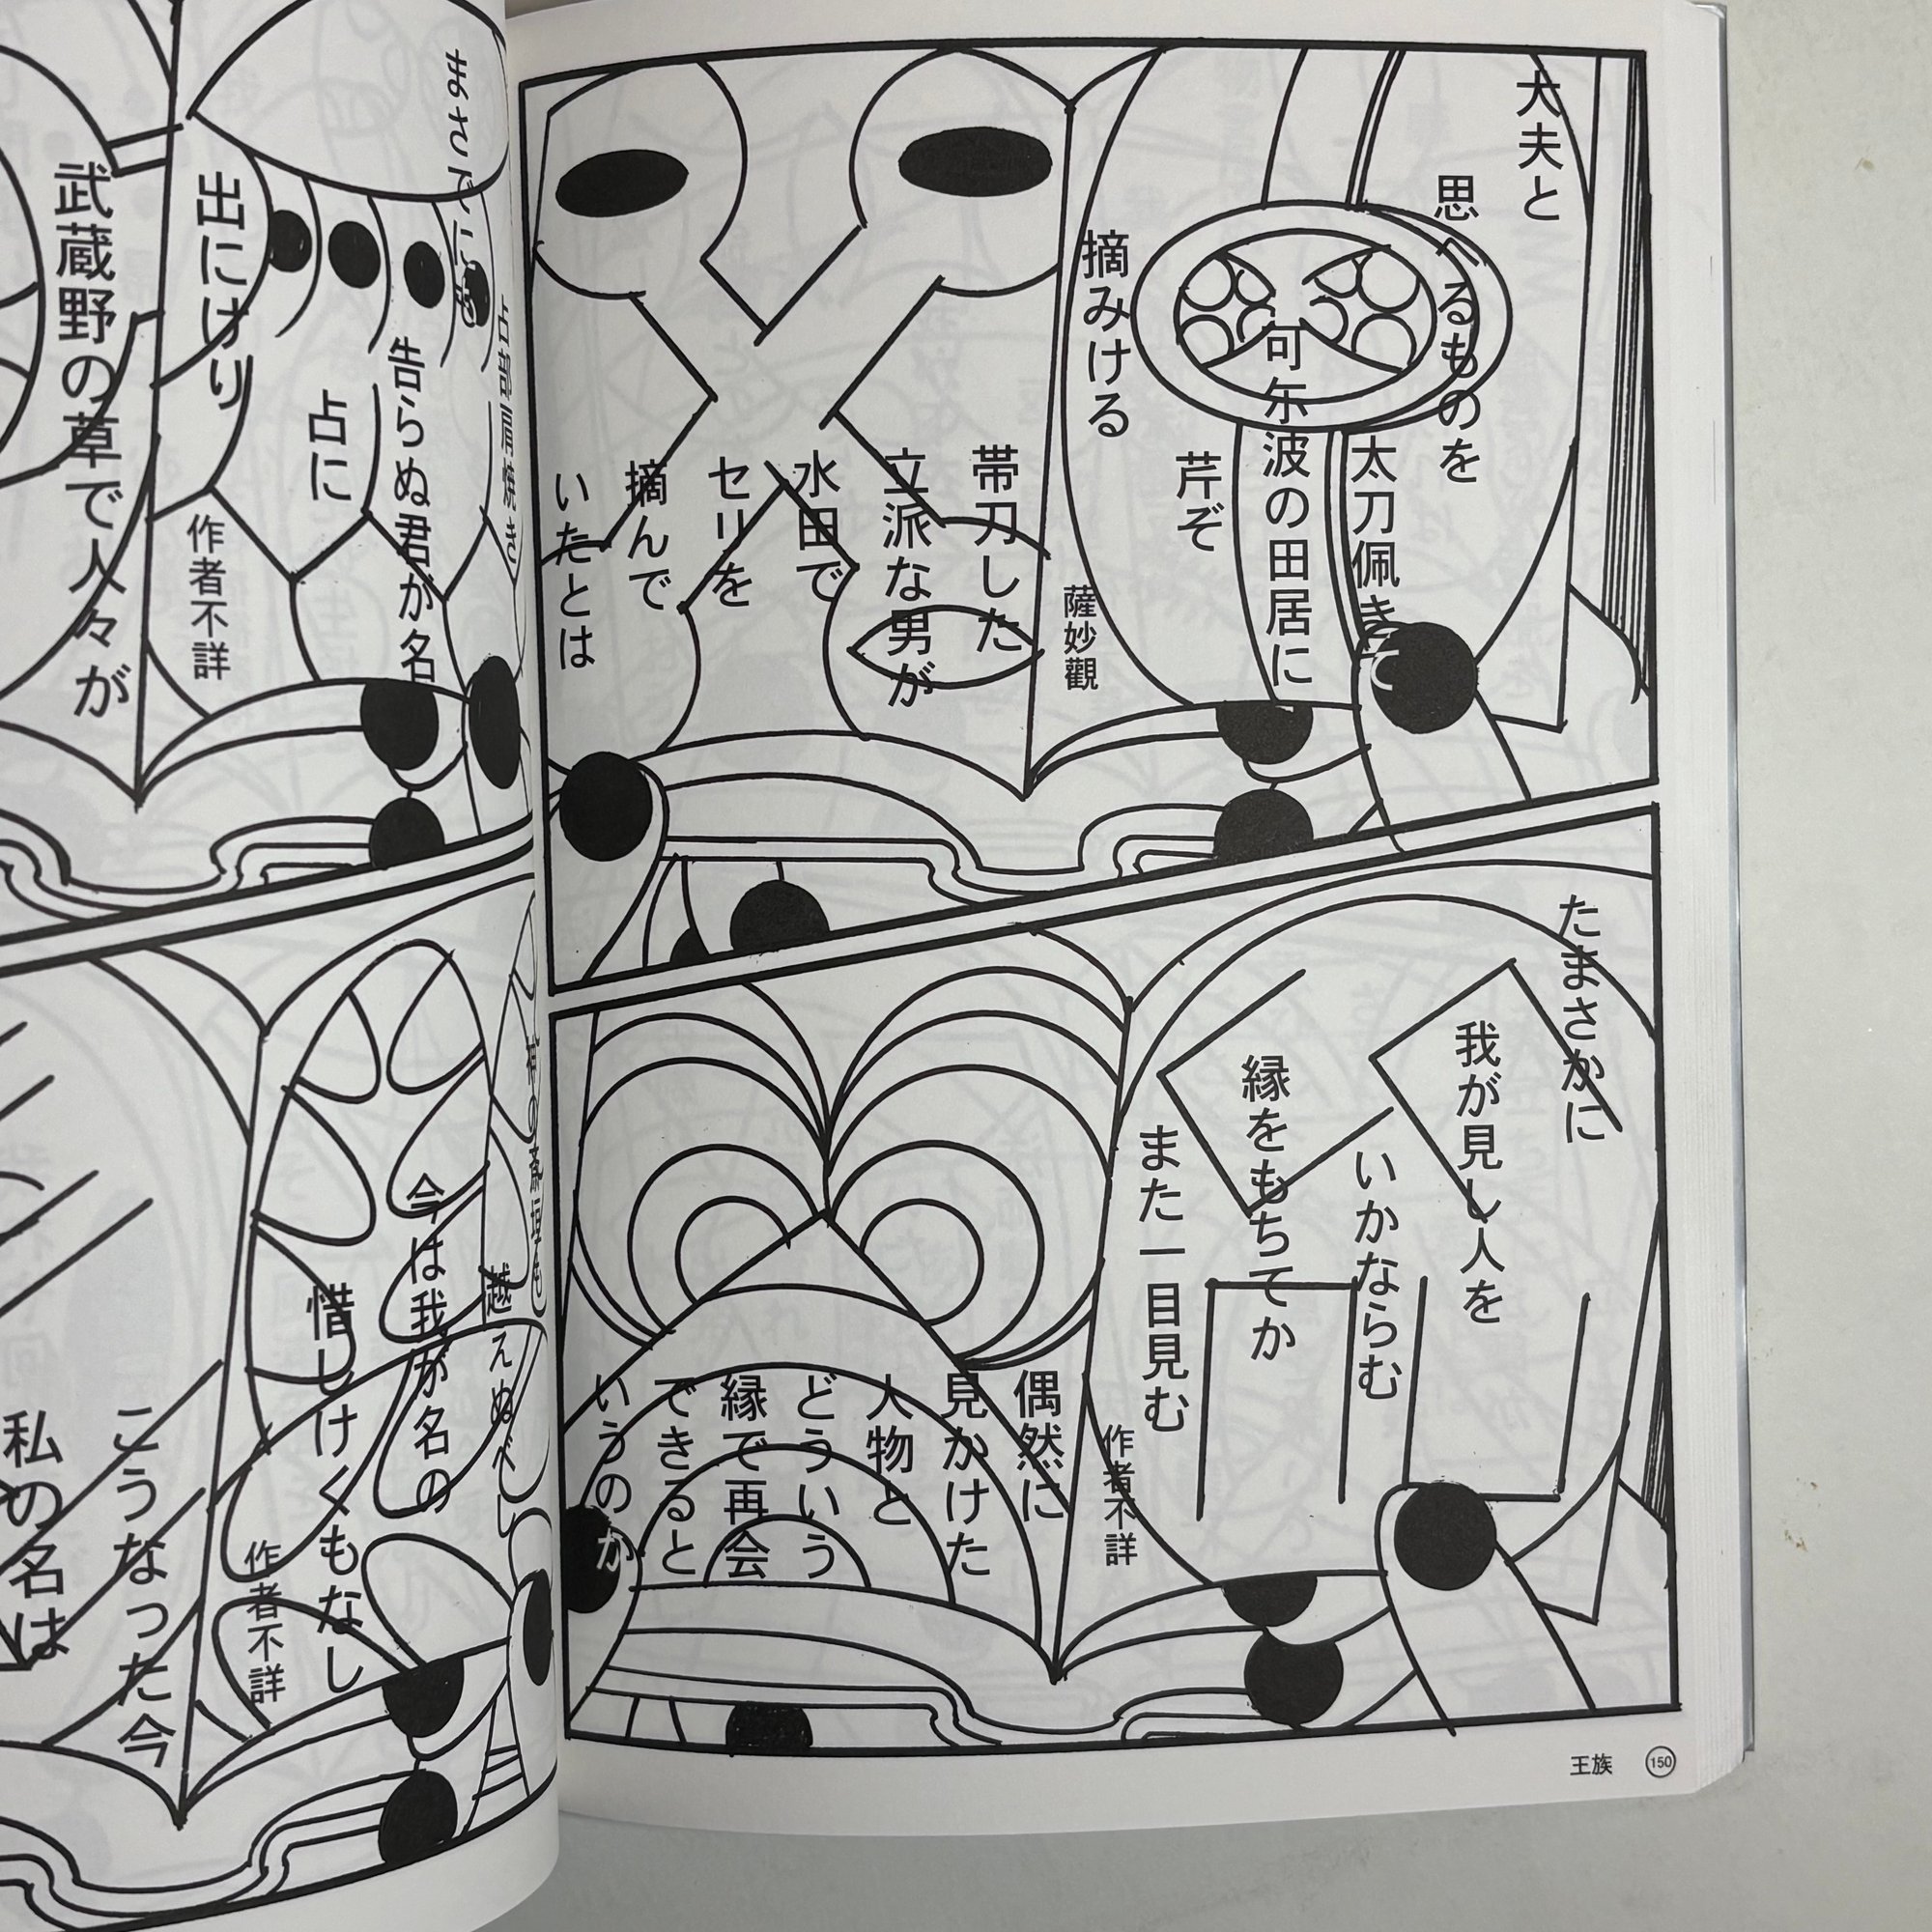 大夫と
思へるものを
太刀佩きて
可尓波の田居に
芹ぞ
摘みける
薩妙觀
帯刀した
立派な男が
水田で
セリを
摘んで
いたとは
たまさかに
我が見し人を
いかならむ
縁をもちてか
また一目見む
作者不詳
偶然に
見かけた
人物と
どういう
縁で再会
できると
いうのか
王族 150
まさでにも
告らぬ君が名
占に
出にけり
作者不詳
武蔵野の草で人々が
神の斎垣も
越えぬべし
今は我が名の
惜しけくもなし
作者不詳
こうなった今
私の名は